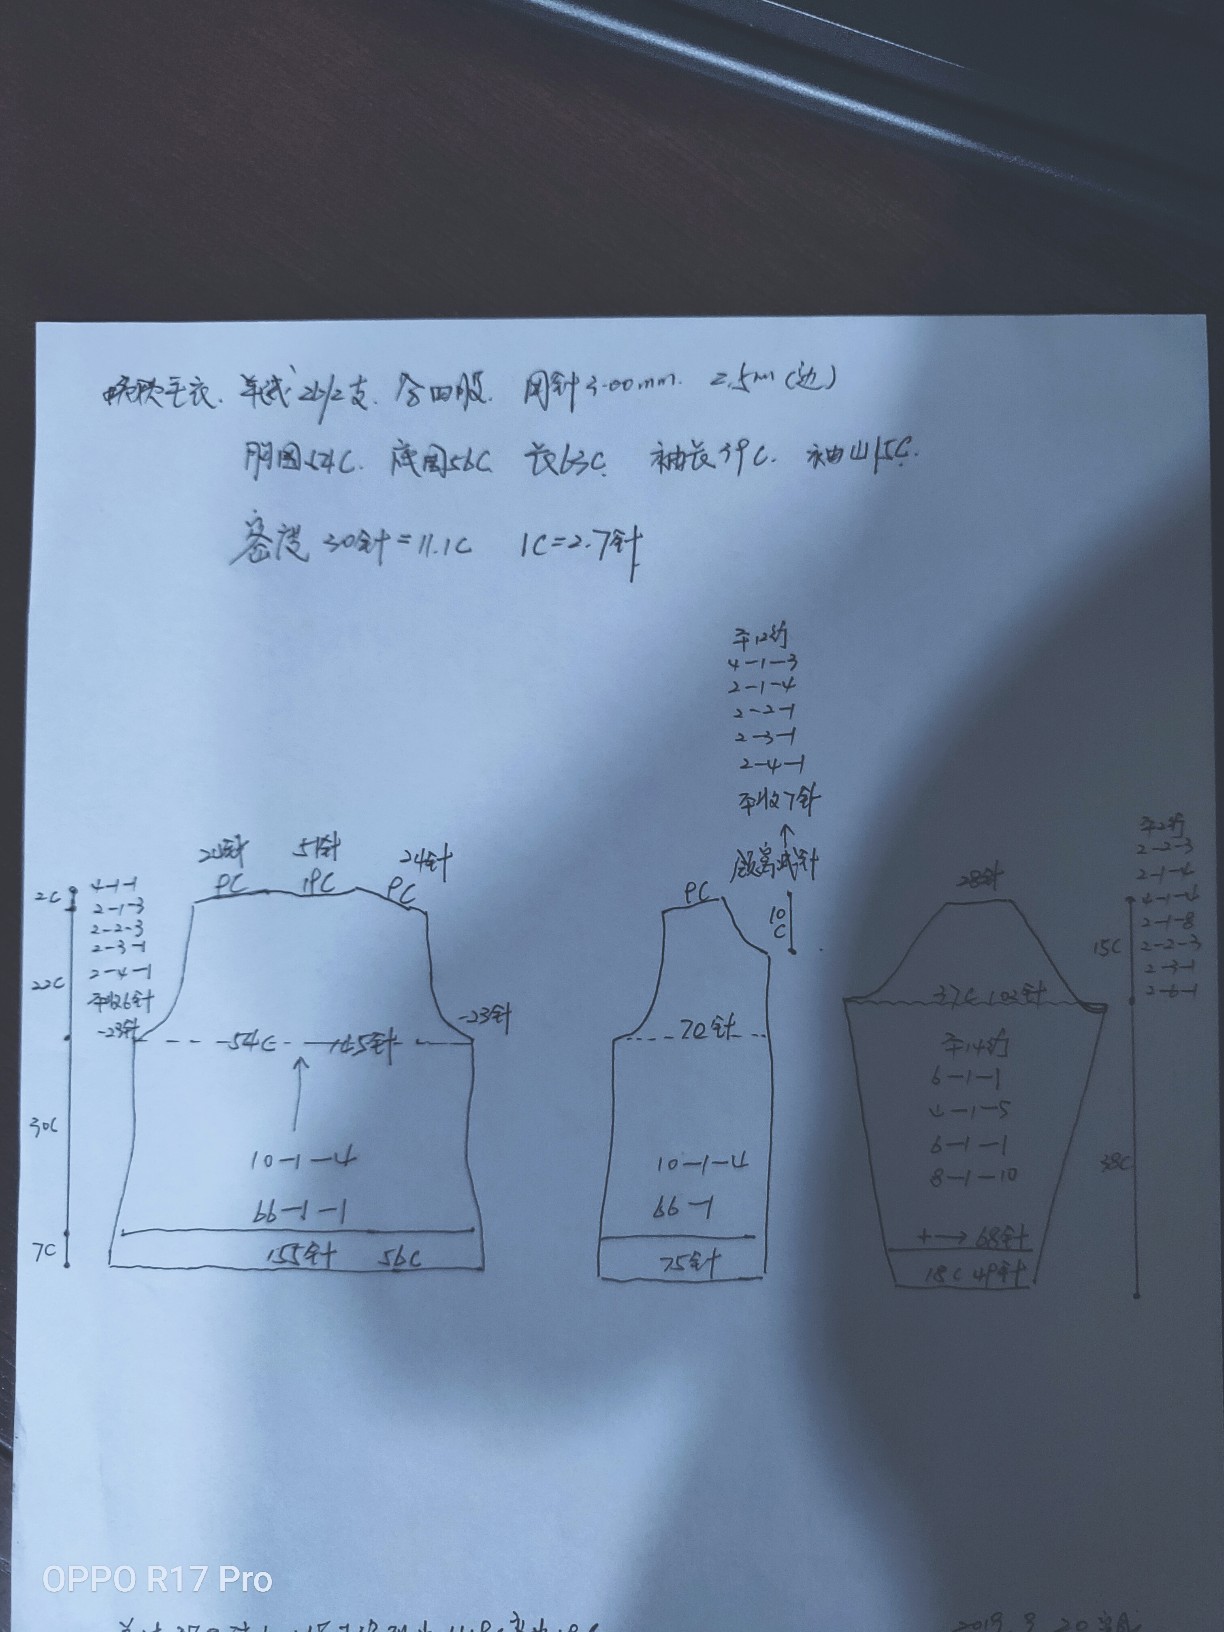 毛衣. 羊绒 26/2支. 合四股. 用针3.00mm. 2.5m(边)
胸围54C. 底围56C 长63C. 袖长39C. 袖山15C.
密度 30针=11.1C 1C=2.7针
平12行
4-1-3
2-1-4
2-2-1
2-3-1
2-4-1
平收7针
领窝减针
10C
24针 51针 24针
9C 19C 9C
2C
4-1-1
2-1-3
2-2-3
2-3-1
2-4-1
平收6针
-23针
22C
-23针
54C 145针
30C
10-1-4
66-1-1
7C
155针 56C
9C
70针
10-1-4
66-1
75针
平2行
2-2-3
2-1-4
4-1-4
2-1-8
2-2-3
2-3-1
2-6-1
28针
15C
37C 102针
平14行
6-1-1
4-1-5
6-1-1
8-1-10
38C
+→68针
18C 49针
OPPO R17 Pro